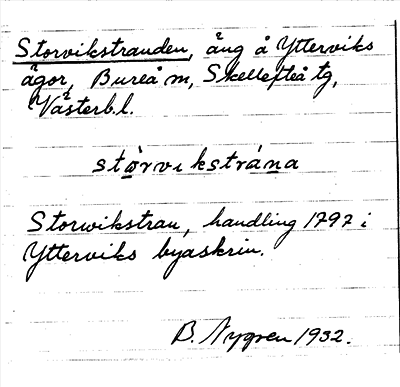 Storvikstranden, äng å Ytterviks
ägor, Bureå sn, Skellefteå tg,
Västerb.l.
stòrvikstrána
Storwikstran, handling 1792 i
Ytterviks byaskrin.
B. Nygren 1932.